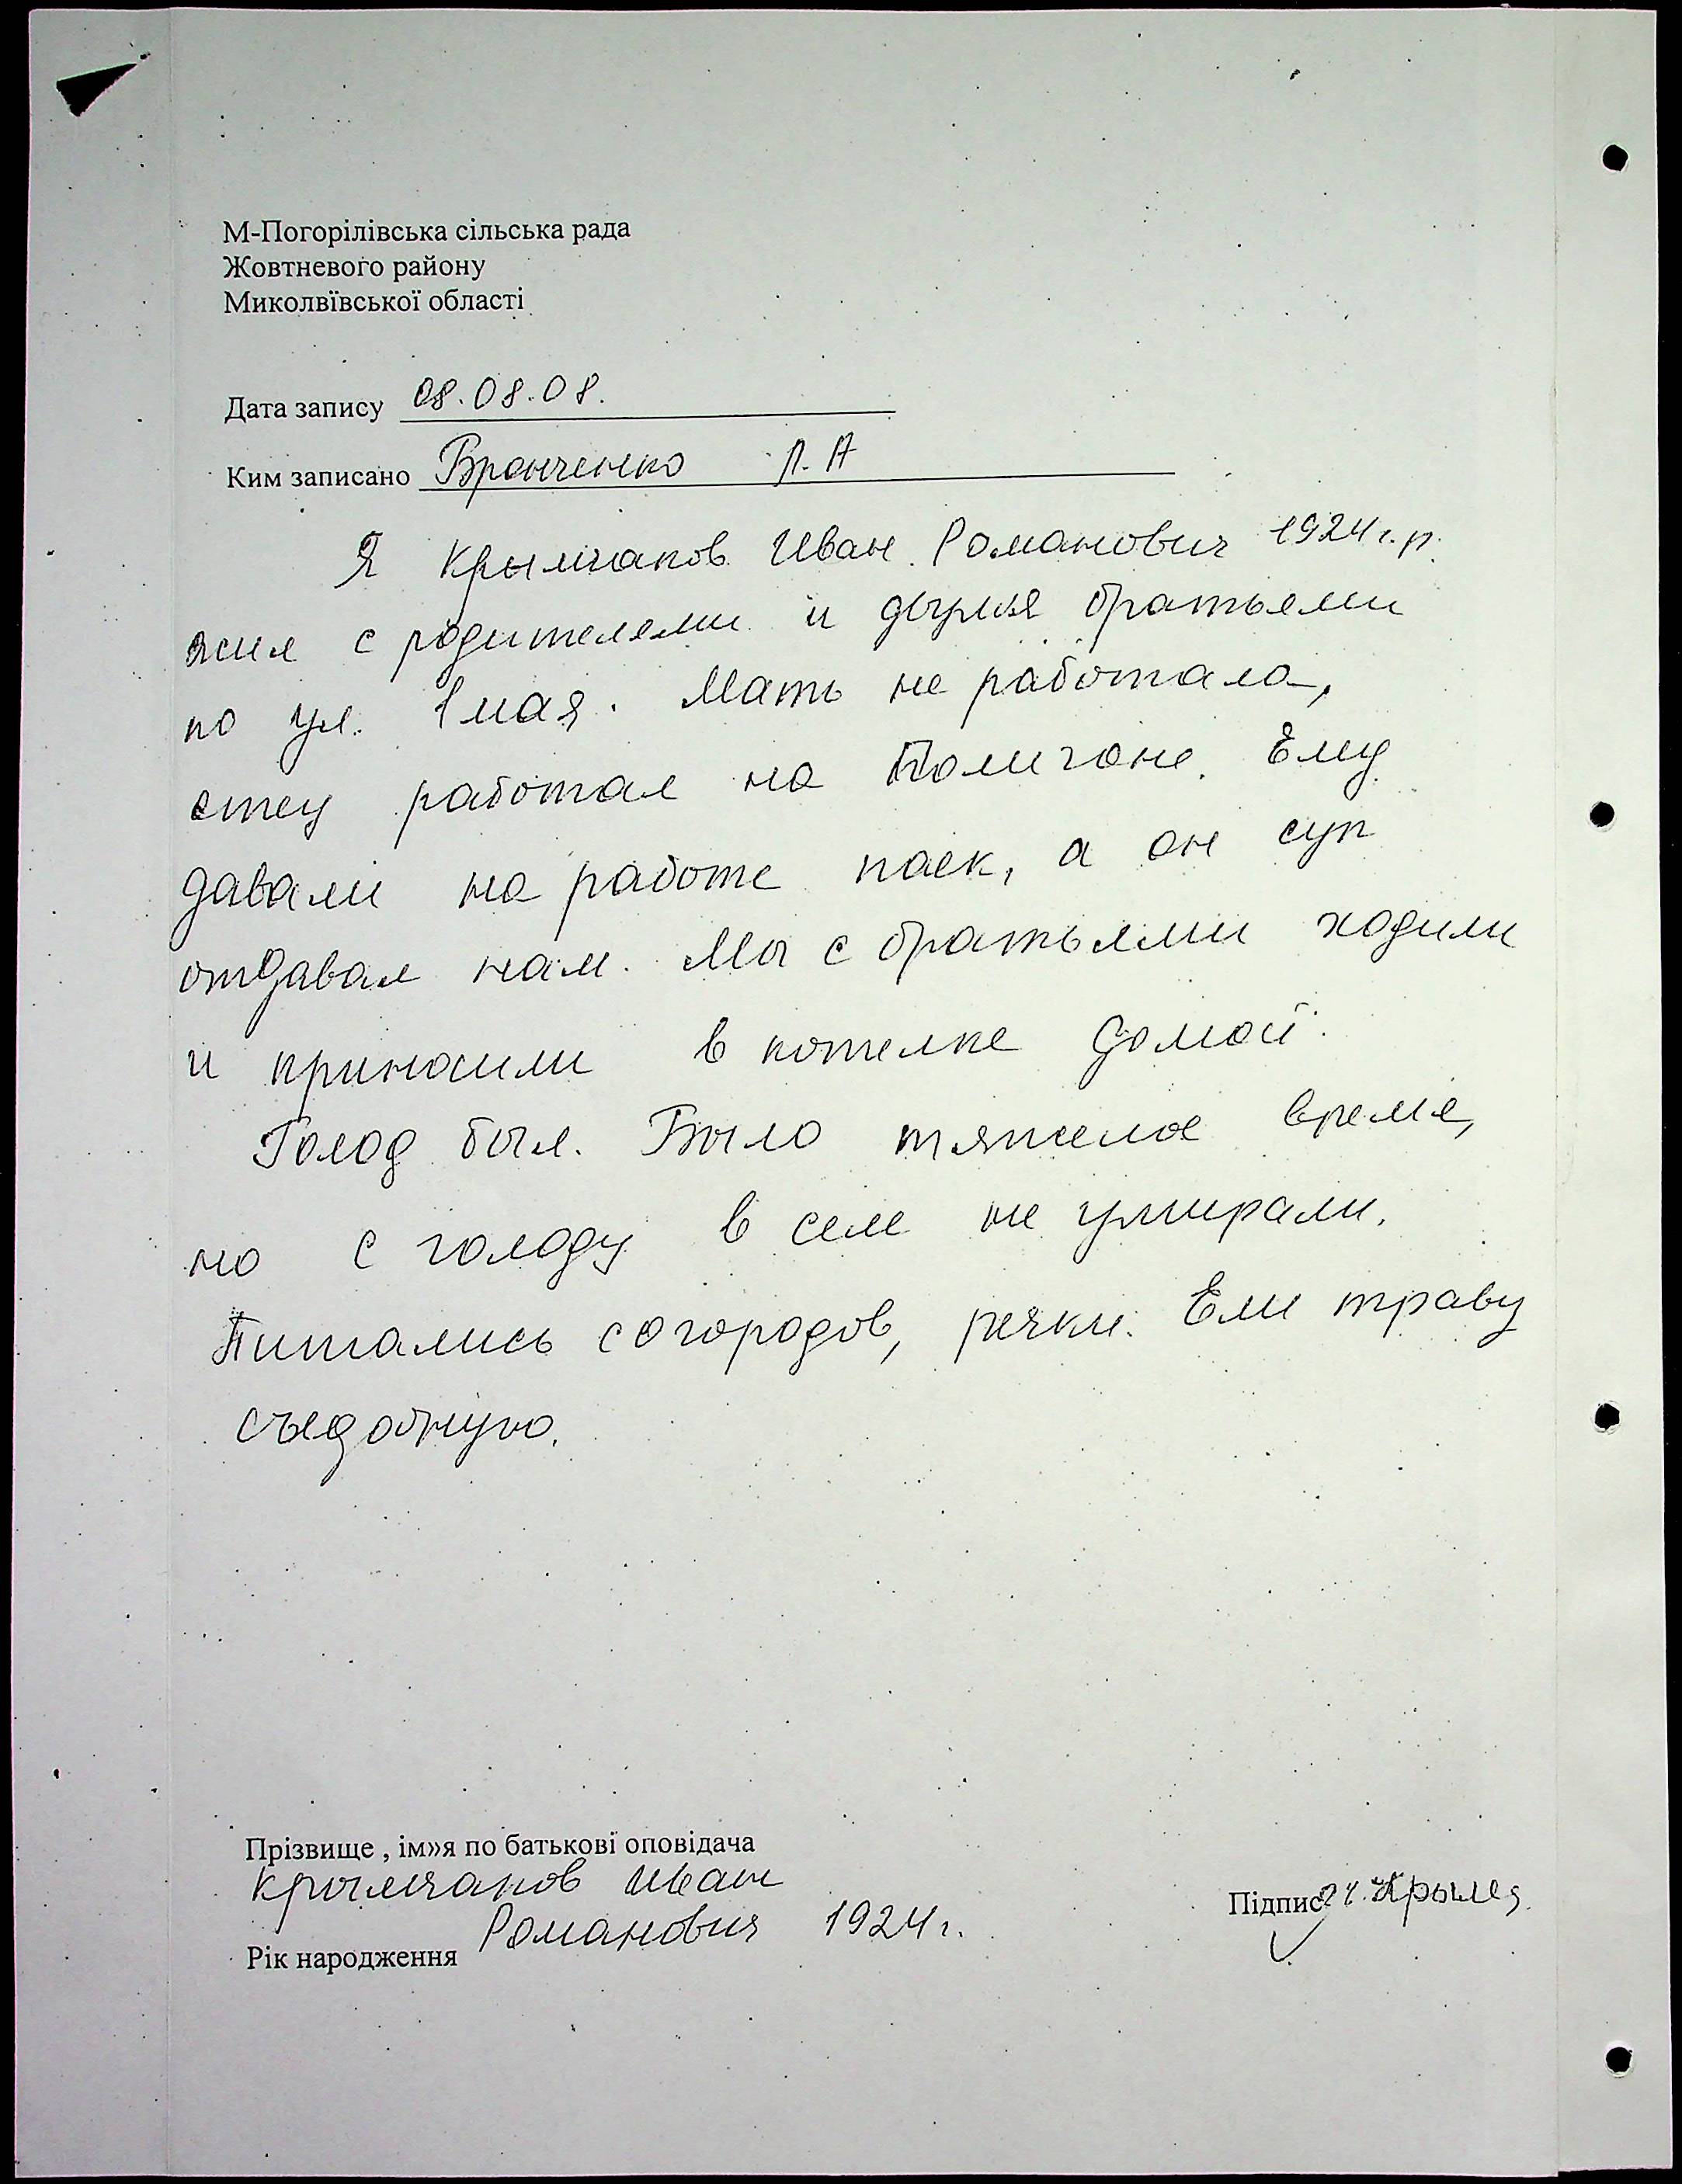 М-Погорілівська сільська рада
Жовтневого району
Миколвївської області
Дата запису 08.08.08.
Ким записано Вронченко Л. А
Я Крымчаков Иван Романович 1924 г. р.
жил с родителями и двумя братьями
по ул. 1 мая. Мать не работала,
отец работал на Полигоне. Ему
давали на работе паек, а он суп
отдавал нам. Мы с братьями ходили
и приносили в котелке домой.
Голод был. Было тяжелое время,
но с голоду в селе не умирали.
Питались с огородов, речки. Ели траву
съедобную.
Прізвище , ім»я по батькові оповідача
Крымчаков Иван
Романович 1924 г.
Рік народження
Підпис